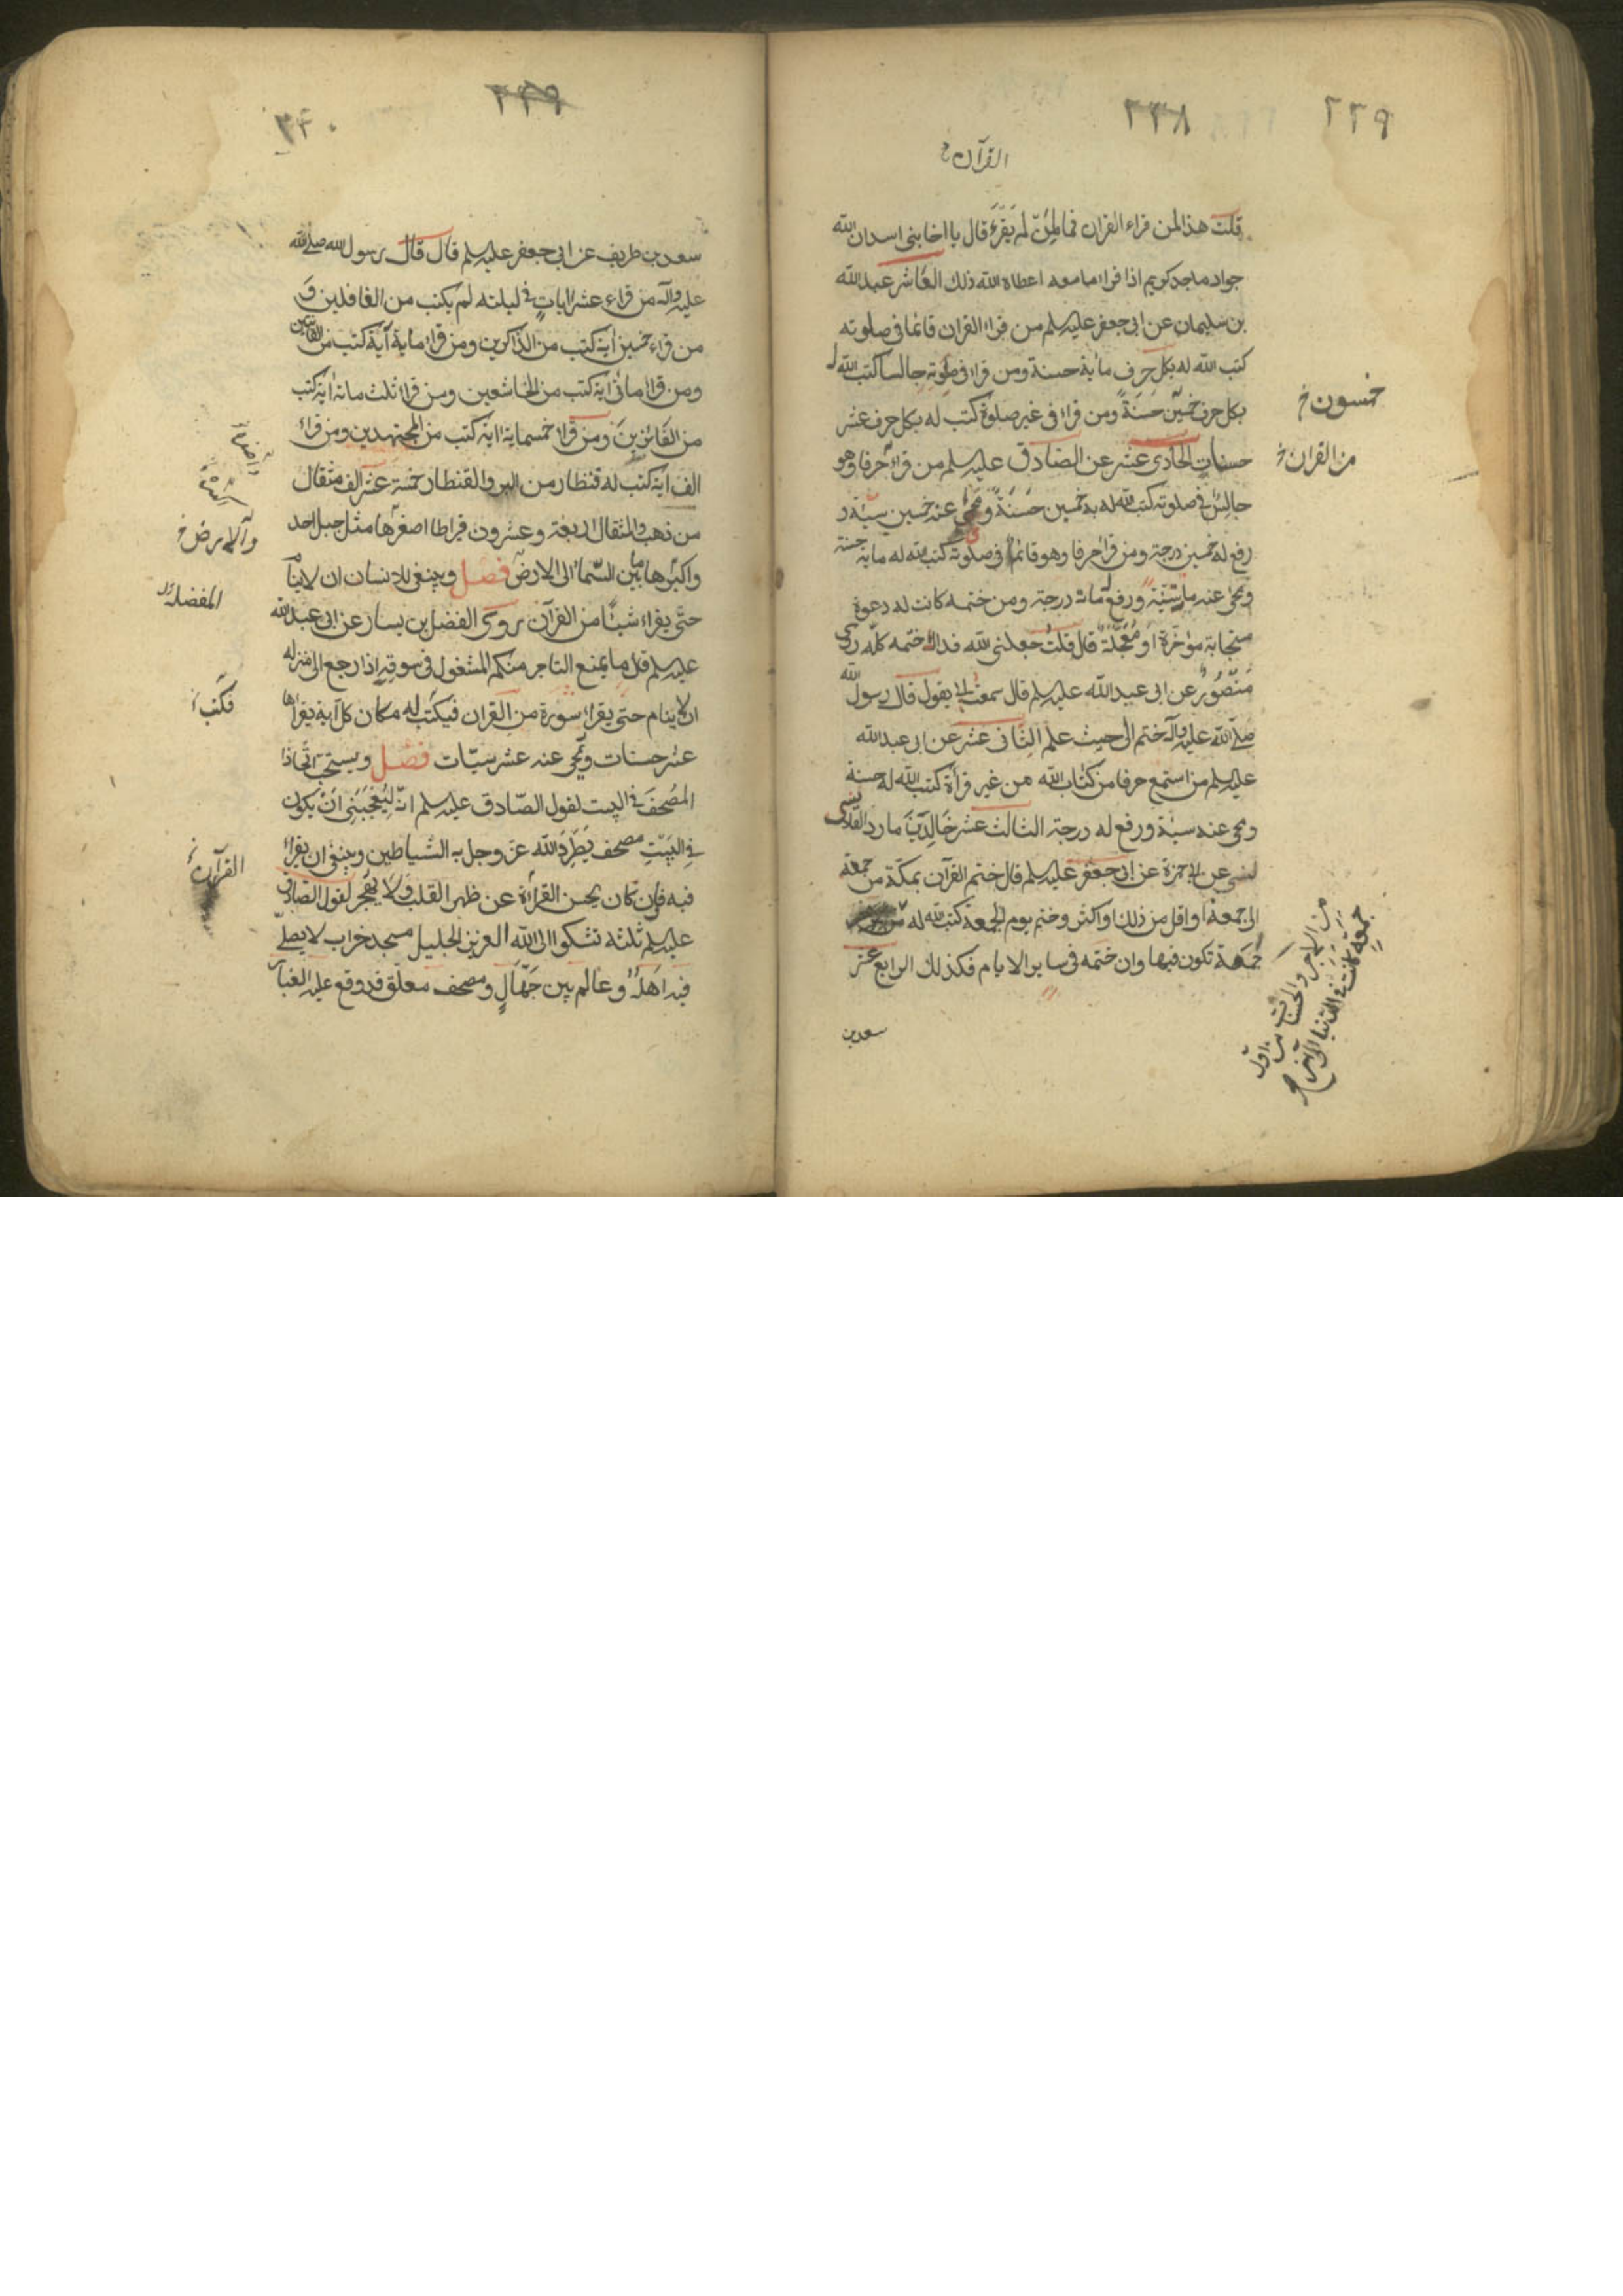 ٢٣٩
٢٣٨
القرآن
قلت هذا لمن قراء القران فما لمن لم يقرء قال يا اخا بنى اسد ان الله
جواد ماجد كريم اذا قراء ما معه اعطاه الله ذلك العاشر عبد الله
بن سليمان عن ابى جعفر عليه سلم من قراء القران قائما فى صلوته
كتب الله له بكل حرف مائة حسنة ومن قراء فى صلوته جالسا كتب الله له
بكل حرف خمسين حسنة ومن قراء فى غير صلوة كتب له بكل حرف عشر
حسنات الحادى عشر عن الصادق عليه سلم من قراء حرفا وهو
جالس فى صلوته كتب الله له به خمسين حسنة ومحى عنه خمسين سيئة و
رفع له خمسين درجة ومن قراء حرفا وهو قائما فى صلوته كتب الله له مائة حسنة
ومحى عنه مائة سيئة ورفع له مائة درجة ومن ختمه كانت له دعوة
مستجابة مؤخرة او معجلة قال قلت جعلنى الله فداك ختمه كله روى
منصور عن ابى عبد الله عليه سلم قال سمعت ابى يقول قال رسول الله
صلى الله عليه وآله ختم الى حيث علم الثانى عشر عن ابى عبد الله
عليه سلم من استمع حرفا من كتاب الله من غير قراءة كتب الله له حسنة
ومحى عنه سيئة ورفع له درجة الثالث عشر خالد بن ماد القلانسى
عن ابى حمزة عن ابى جعفر عليه سلم قال ختم القرآن بمكة من جمعة
الى جمعة او اقل من ذلك او اكثر وختم يوم الجمعة كتب الله له
جمعة تكون فيها وان ختمه فى ساير الايام فكذلك الرابع عشر
سعد بن
خمسون خ
من القران خ
من الاجر والحسنات من اول
جمعة كانت فى الدنيا الى آخر
٢٣٩
٢٤٠
سعد بن طريف عن ابى جعفر عليه سلم قال قال رسول الله صلى الله
عليه وآله من قراء عشر ايات فى ليلته لم يكتب من الغافلين و
من قراء خمسين اية كتب من الذاكرين ومن قراء ماية آية كتب من القانتين
ومن قراء مائتى اية كتب من الخاشعين ومن قراء ثلث مائة اية كتب
من الفائزين ومن قراء خمسماية اية كتب من المجتهدين ومن قراء
الف اية كتب له قنطار من البر والقنطار خمسة عشر الف مثقال
من ذهب والمثقال اربعة وعشرون قيراطا اصغرها مثل جبل احد
واكبرها ما بين السماء الى الارض فصل وينبغى للانسان ان لا ينام
حتى يقراء شيئا من القرآن روى الفضل بن يسار عن ابى عبد الله
عليه سلم قال ما يمنع التاجر منكم المشغول فى سوقه اذا رجع الى منزله
ان لا ينام حتى يقراء سورة من القران فيكتب له مكان كل آية يقراها
عشر حسنات ويمحى عنه عشر سيئات فصل ويستحب اتخاذ
المصحف فى البيت لقول الصادق عليه سلم انه ليعجبنى ان يكون
فى البيت مصحف يطرد الله عز وجل به الشياطين وينبغى ان يقراء
فيه فان كان يحسن القراءة عن ظهر القلب ولا يهجر لقول الصادق
عليه سلم ثلثة تشكوا الى الله العزيز الجليل مسجد خراب لا يصلى
فيه اهله وعالم بين جهال ومصحف معلق قد وقع عليه الغبار
والارض خ
المفضل
فكتب
القرآن